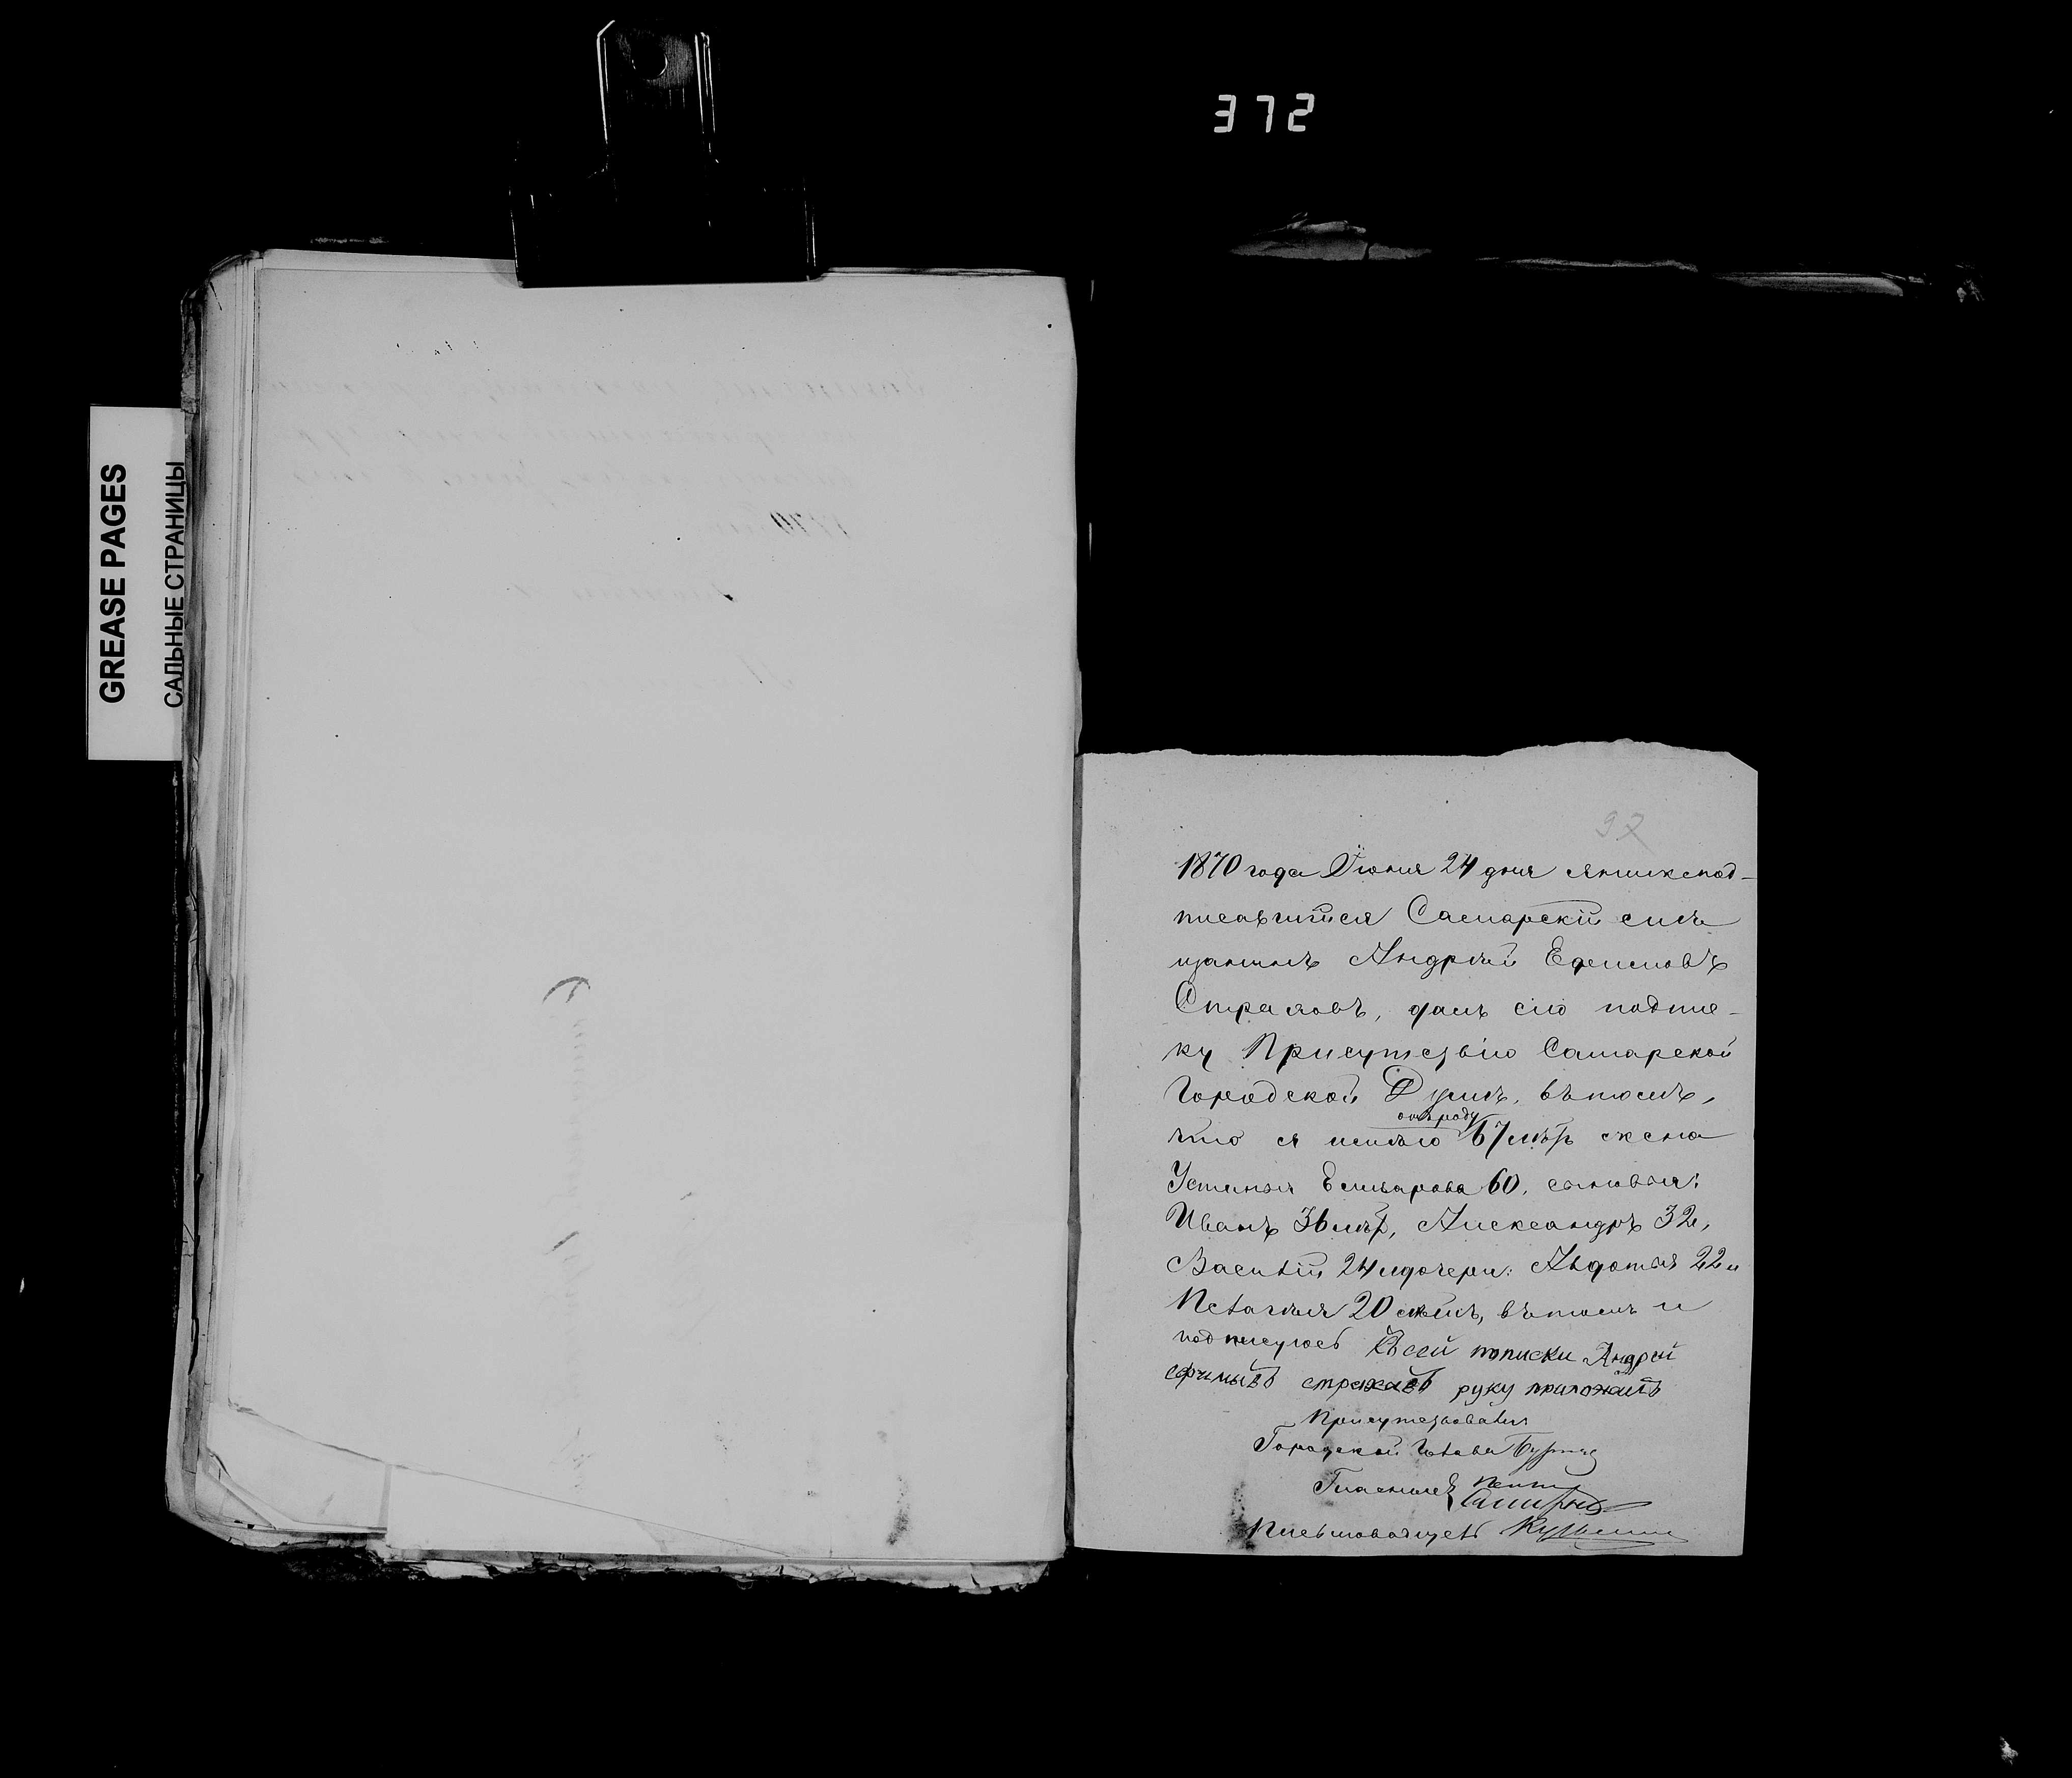 372
GREASE PAGES
САЛЬНЫЕ СТРАНИЦЫ
92
1870 года Июня 24 дня я нижепод-
писавшійся Самарскій мѣ
щанинъ Андрей Ефимовъ
Страховъ, далъ сію подпис-
ку Присутствію Самарской
Городской Думы, въ томъ,
отъ роду
что я имѣю 67 лѣтъ жена
Устинья 60, сыновья:
Иванъ 36 лѣтъ, Александръ 32,
Василій 24 и дочери: Авдотья 22 и
Пелагия 20, въ томъ и
подписуюсь Къ сей пописки Андрей
страховъ руку приложилъ
Присутствовали
Городской Глава
Гласный
Письмоводитель